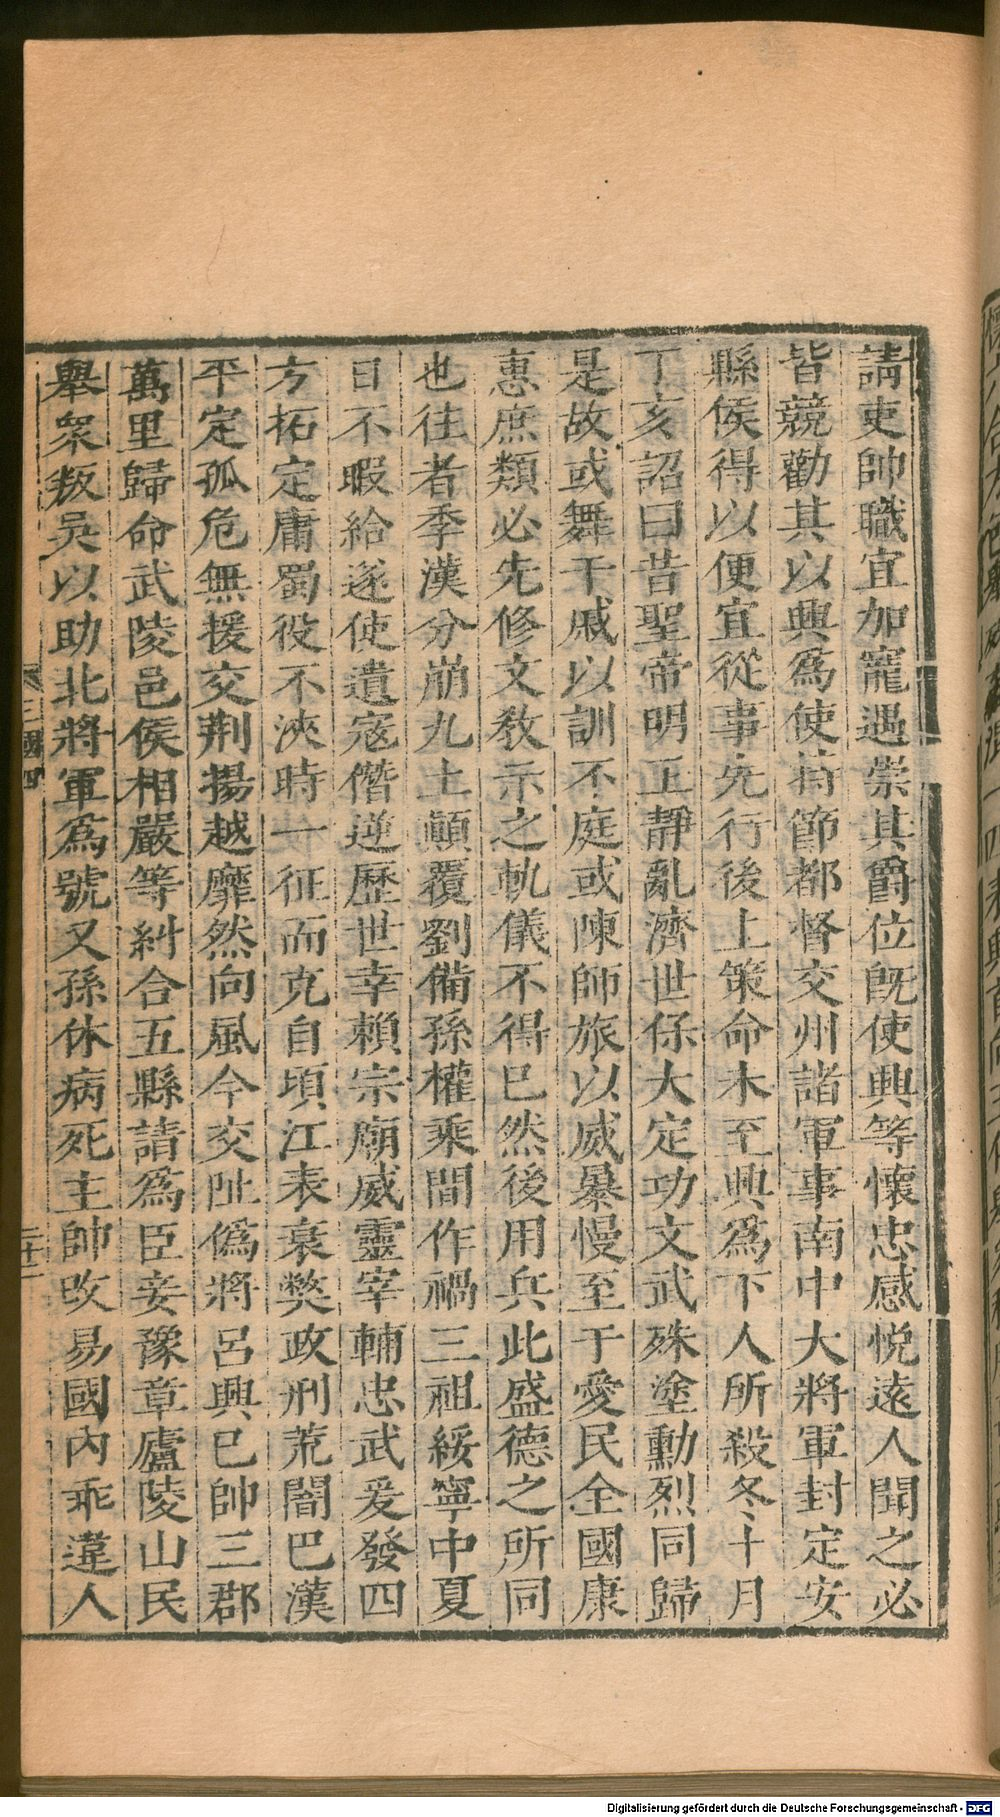 請吏帥職宜加寵遇崇其爵位旣使興等懷忠感悅遠人聞之必
皆競勸其以興爲使持節都督交州諸軍事南中大將軍封定安
縣侯得以便宜從事先行後上策命未至興爲下人所殺冬十月
丁亥詔曰昔聖帝明王靜亂濟世保大定功文武殊塗勳烈同歸
是故或舞干戚以訓不庭或陳師旅以威暴慢至于愛民全國康
惠庶類必先修文敎示之軌儀不得已然後用兵此盛德之所同
也往者季漢分崩九土顚覆劉備孫權乘間作禍三祖綏寧中夏
日不暇給遂使遺寇僭逆歷世幸賴宗廟威靈宰輔忠武爰發四
方拓定庸蜀役不浹時一征而克自頃江表衰獘政刑荒闇巴漢
平定孤危無援交荆揚越靡然向風今交阯僞將呂興已帥三郡
萬里歸命武陵邑侯相嚴等糾合五縣請爲臣妾豫章廬陵山民
舉衆叛吳以助北將軍爲號又孫休病死主帥改易國內乖違人
三國四
二十二
Digitalisierung gefördert durch die Deutsche Forschungsgemeinschaft - DFG